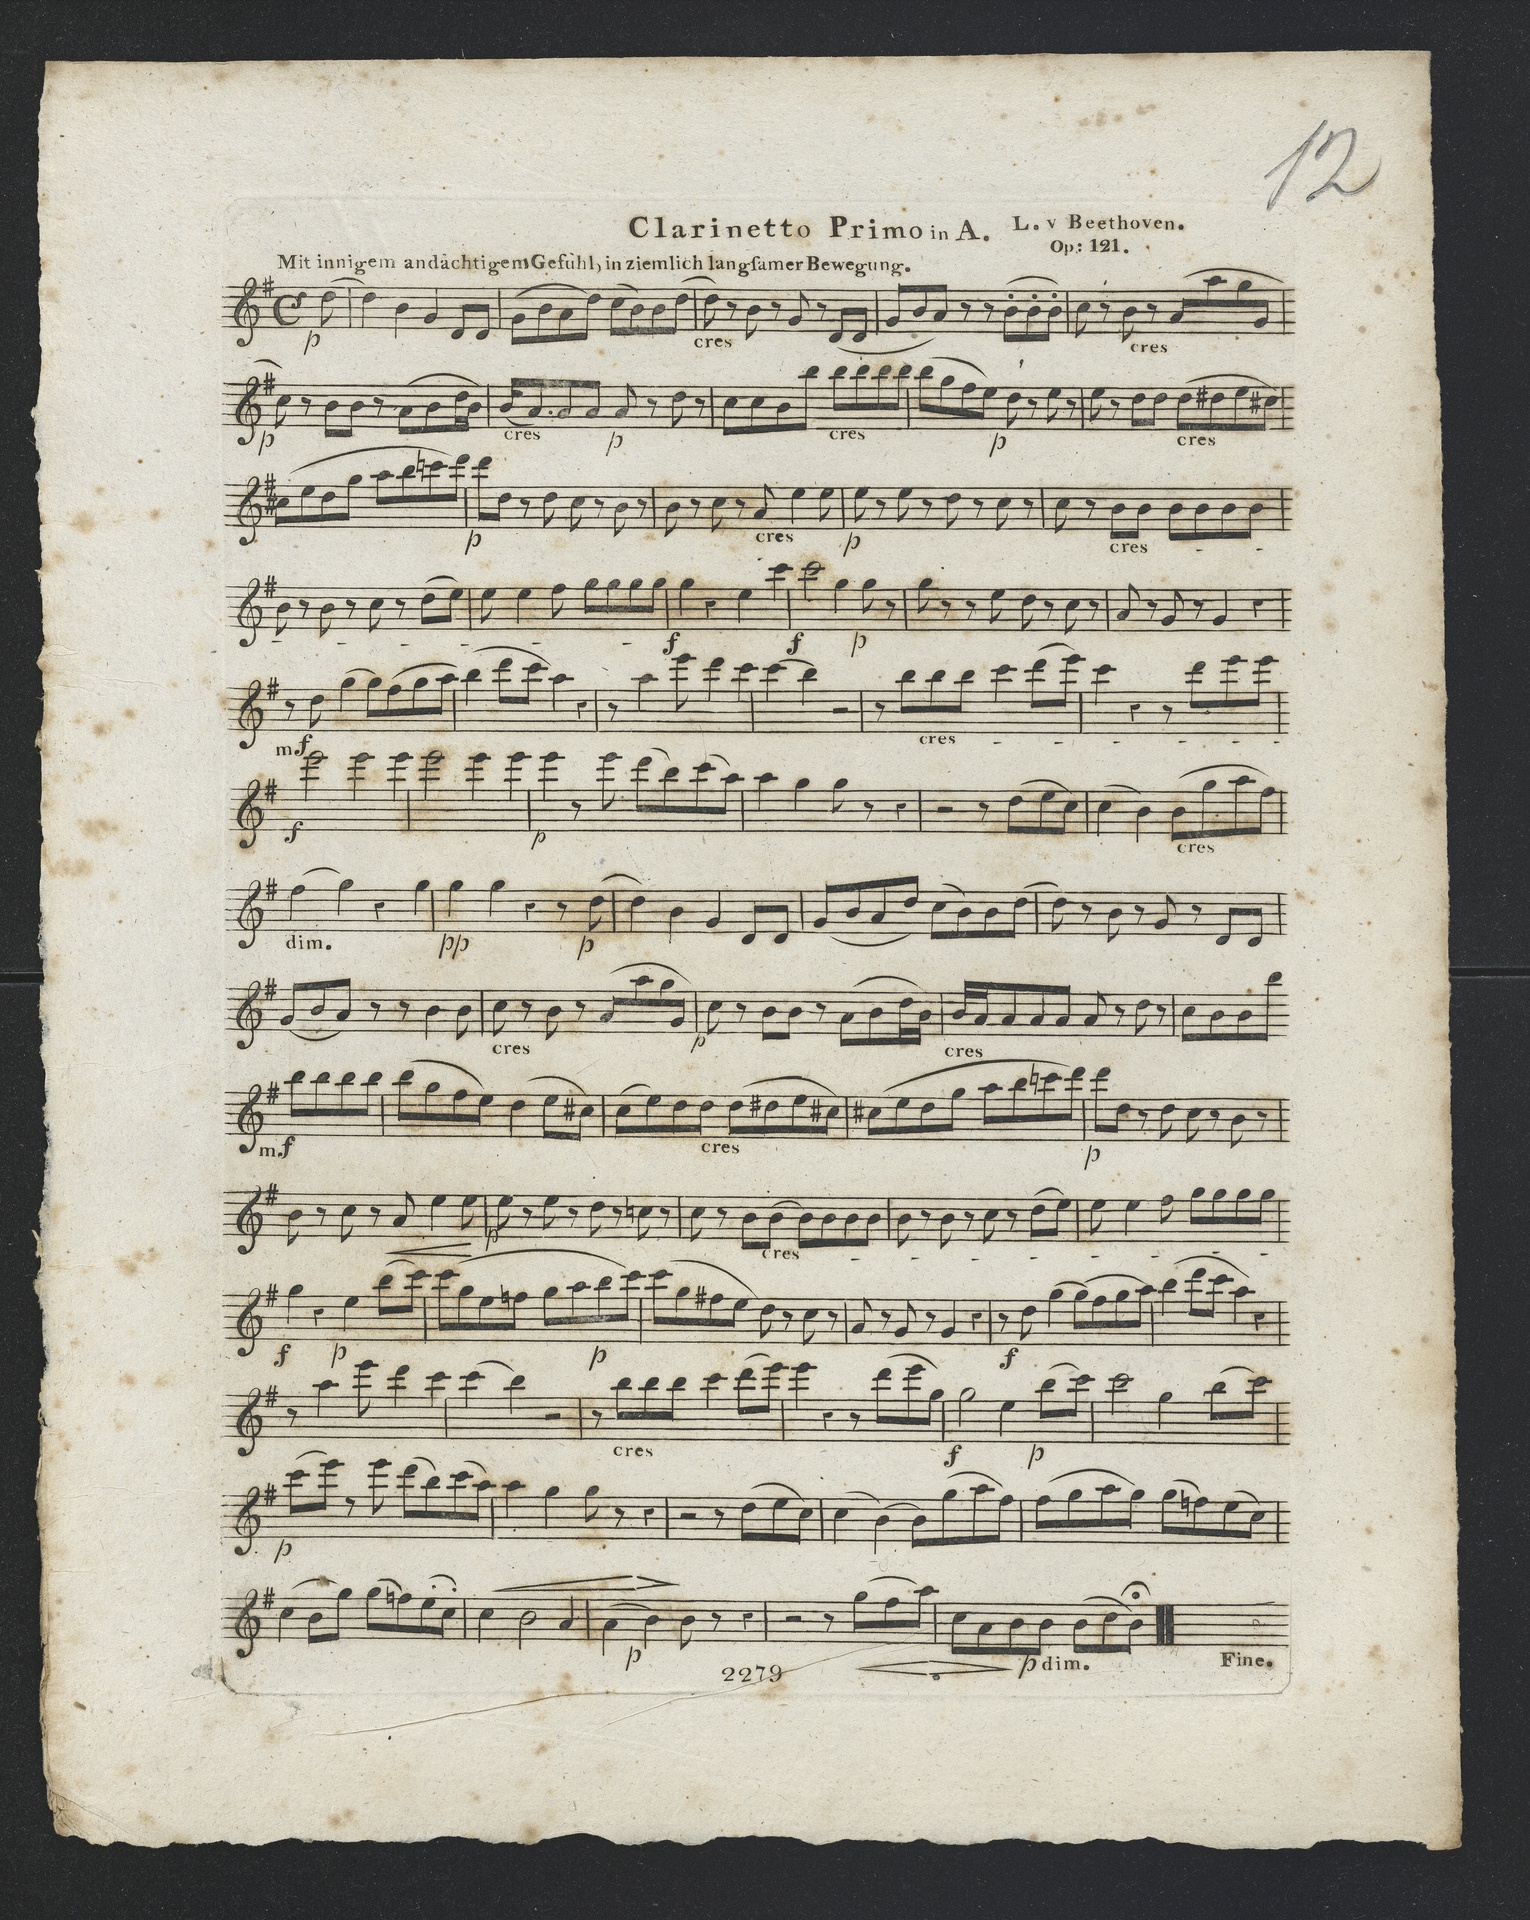 12
Clarinetto Primo in A. L. v Beethoven.
Op: 121.
Mit innigem andächtigem Gefühl, in ziemlich langſamer Bewegung.
p cres cres
p cres p cres p cres
p cres p cres
f f p
mf cres
f p cres
dim. pp p
cres p cres
mf cres p
p cres
f p p f
cres f p
p
p p dim. Fine.
2279